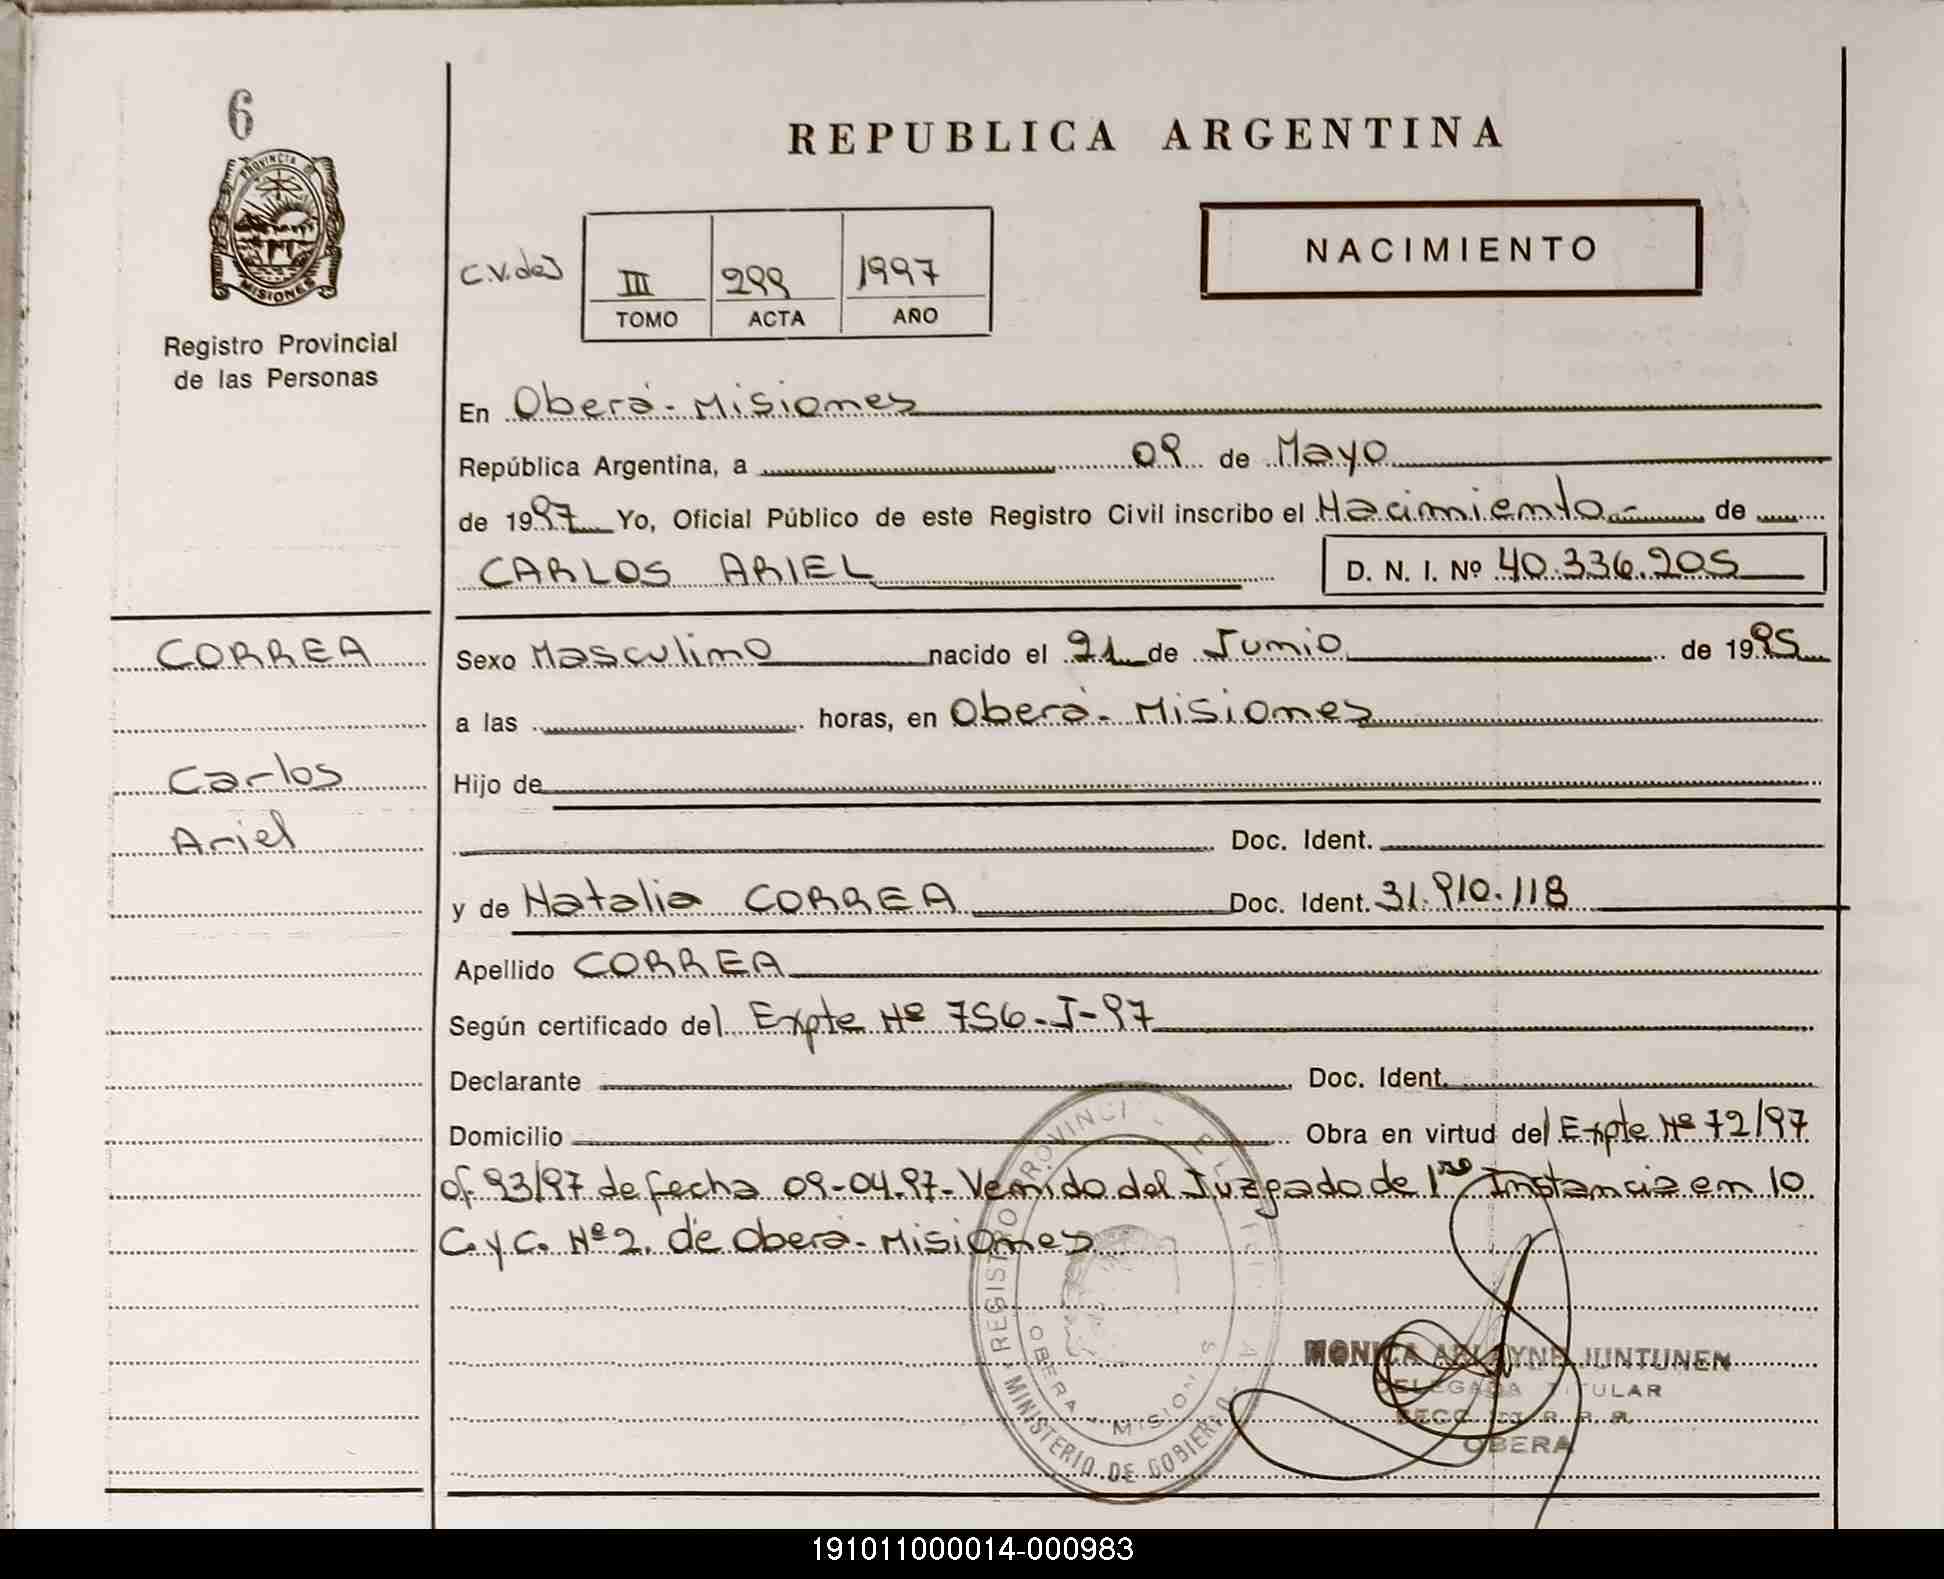 6
PROVINCIA DE
MISIONES
Registro Provincial
de las Personas
REPUBLICA ARGENTINA
NACIMIENTO
III 299 1997
TOMO ACTA AÑO
En Oberá - Misiones
República Argentina, a 09 de Mayo
de 1997 Yo, Oficial Público de este Registro Civil inscribo el Nacimiento de
CARLOS ARIEL D. N. I. Nº 40.336.205
CORREA
Carlos
Ariel
Sexo Masculino nacido el 21 de Junio de 1995
a las horas, en Oberá - Misiones
Hijo de
Doc. Ident.
y de Natalia CORREA Doc. Ident. 31.910.118
Apellido CORREA
Según certificado del Expte Nº 756-I-97
Declarante Doc. Ident.
Domicilio Obra en virtud del Expte Nº 72/97
of. 93/97 de fecha 09-04-97- Venido del Juzgado de 1ra Instancia en lo
C. y C. Nº 2. de Oberá - Misiones
REGISTRO PROVINCIAL DE LAS
MINISTERIO DE GOBIERNO
OBERA - MISIONES
MONICA JUNTUNEN
DELEGADA TITULAR
OBERA
191011000014-000983